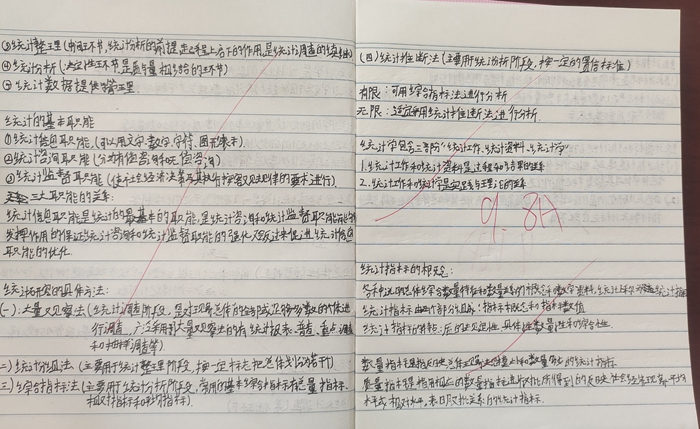 ③统计整理(中间环节,统计分析的前提,起承上启下的作用,是统计调查的续继)
④统计分析(决定性环节,是质与量相结合的环节)
⑤统计数据提供与管理
统计的基本职能
①统计信息职能.(可以用文字、数字、字符、图形表示).
②统计咨询职能(分有偿咨询和无偿咨询)
③统计监督职能(使社会经济决策及其执行按客观规律的要求进行).
三大职能的关系:
统计信息职能是统计的最基本的职能,是统计咨询和统计监督职能能够
发挥作用的保证,统计咨询和统计监督职能的强化又会反过来促进统计信息
职能的优化.
统计研究的具体方法:
(一).大量观察法(统计调查阶段,是对现象总体的全部或足够多数的个体进
行调查. 广泛采用大量观察法的有统计报表、普查、重点调查
和抽样调查等)
二)统计分组法(主要用于统计整理阶段,按一定标志把总体划分若干)
三)综合指标法(主要用于统计分析阶段,常用的基本综合指标有总量指标、
相对指标和平均指标).
(四)统计推断法(主要用于统计分析阶段,按一定的置信标准)
有限:可用综合指标法进行分析
无限:适宜采用统计推断法进行分析
统计学包含三部分"统计工作、统计资料、统计学"
1.统计工作和统计资料是过程和结果的关系
2.统计工作和统计学是实践与理论的关系
9.8A
统计指标的概念:
统计指标由两个部分组成:指标概念和指标数值
数量指标是指反映总体
质量指标是指用相应的数量指标进行对比所得到的反映社会经济现象平均
水平或相对水平,表明对比关系的统计指标.